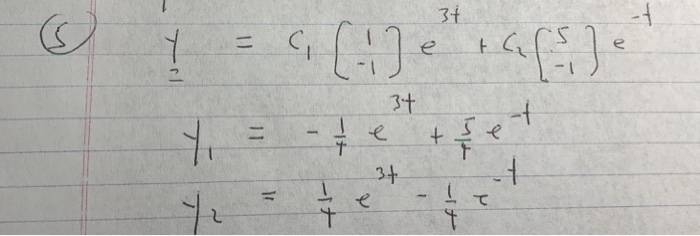 (5) y = c₁ [1 -1] e^3t + c₂ [5 -1] e^-t
y₁ = - 1/4 e^3t + 5/4 e^-t
y₂ = 1/4 e^3t - 1/4 e^-t